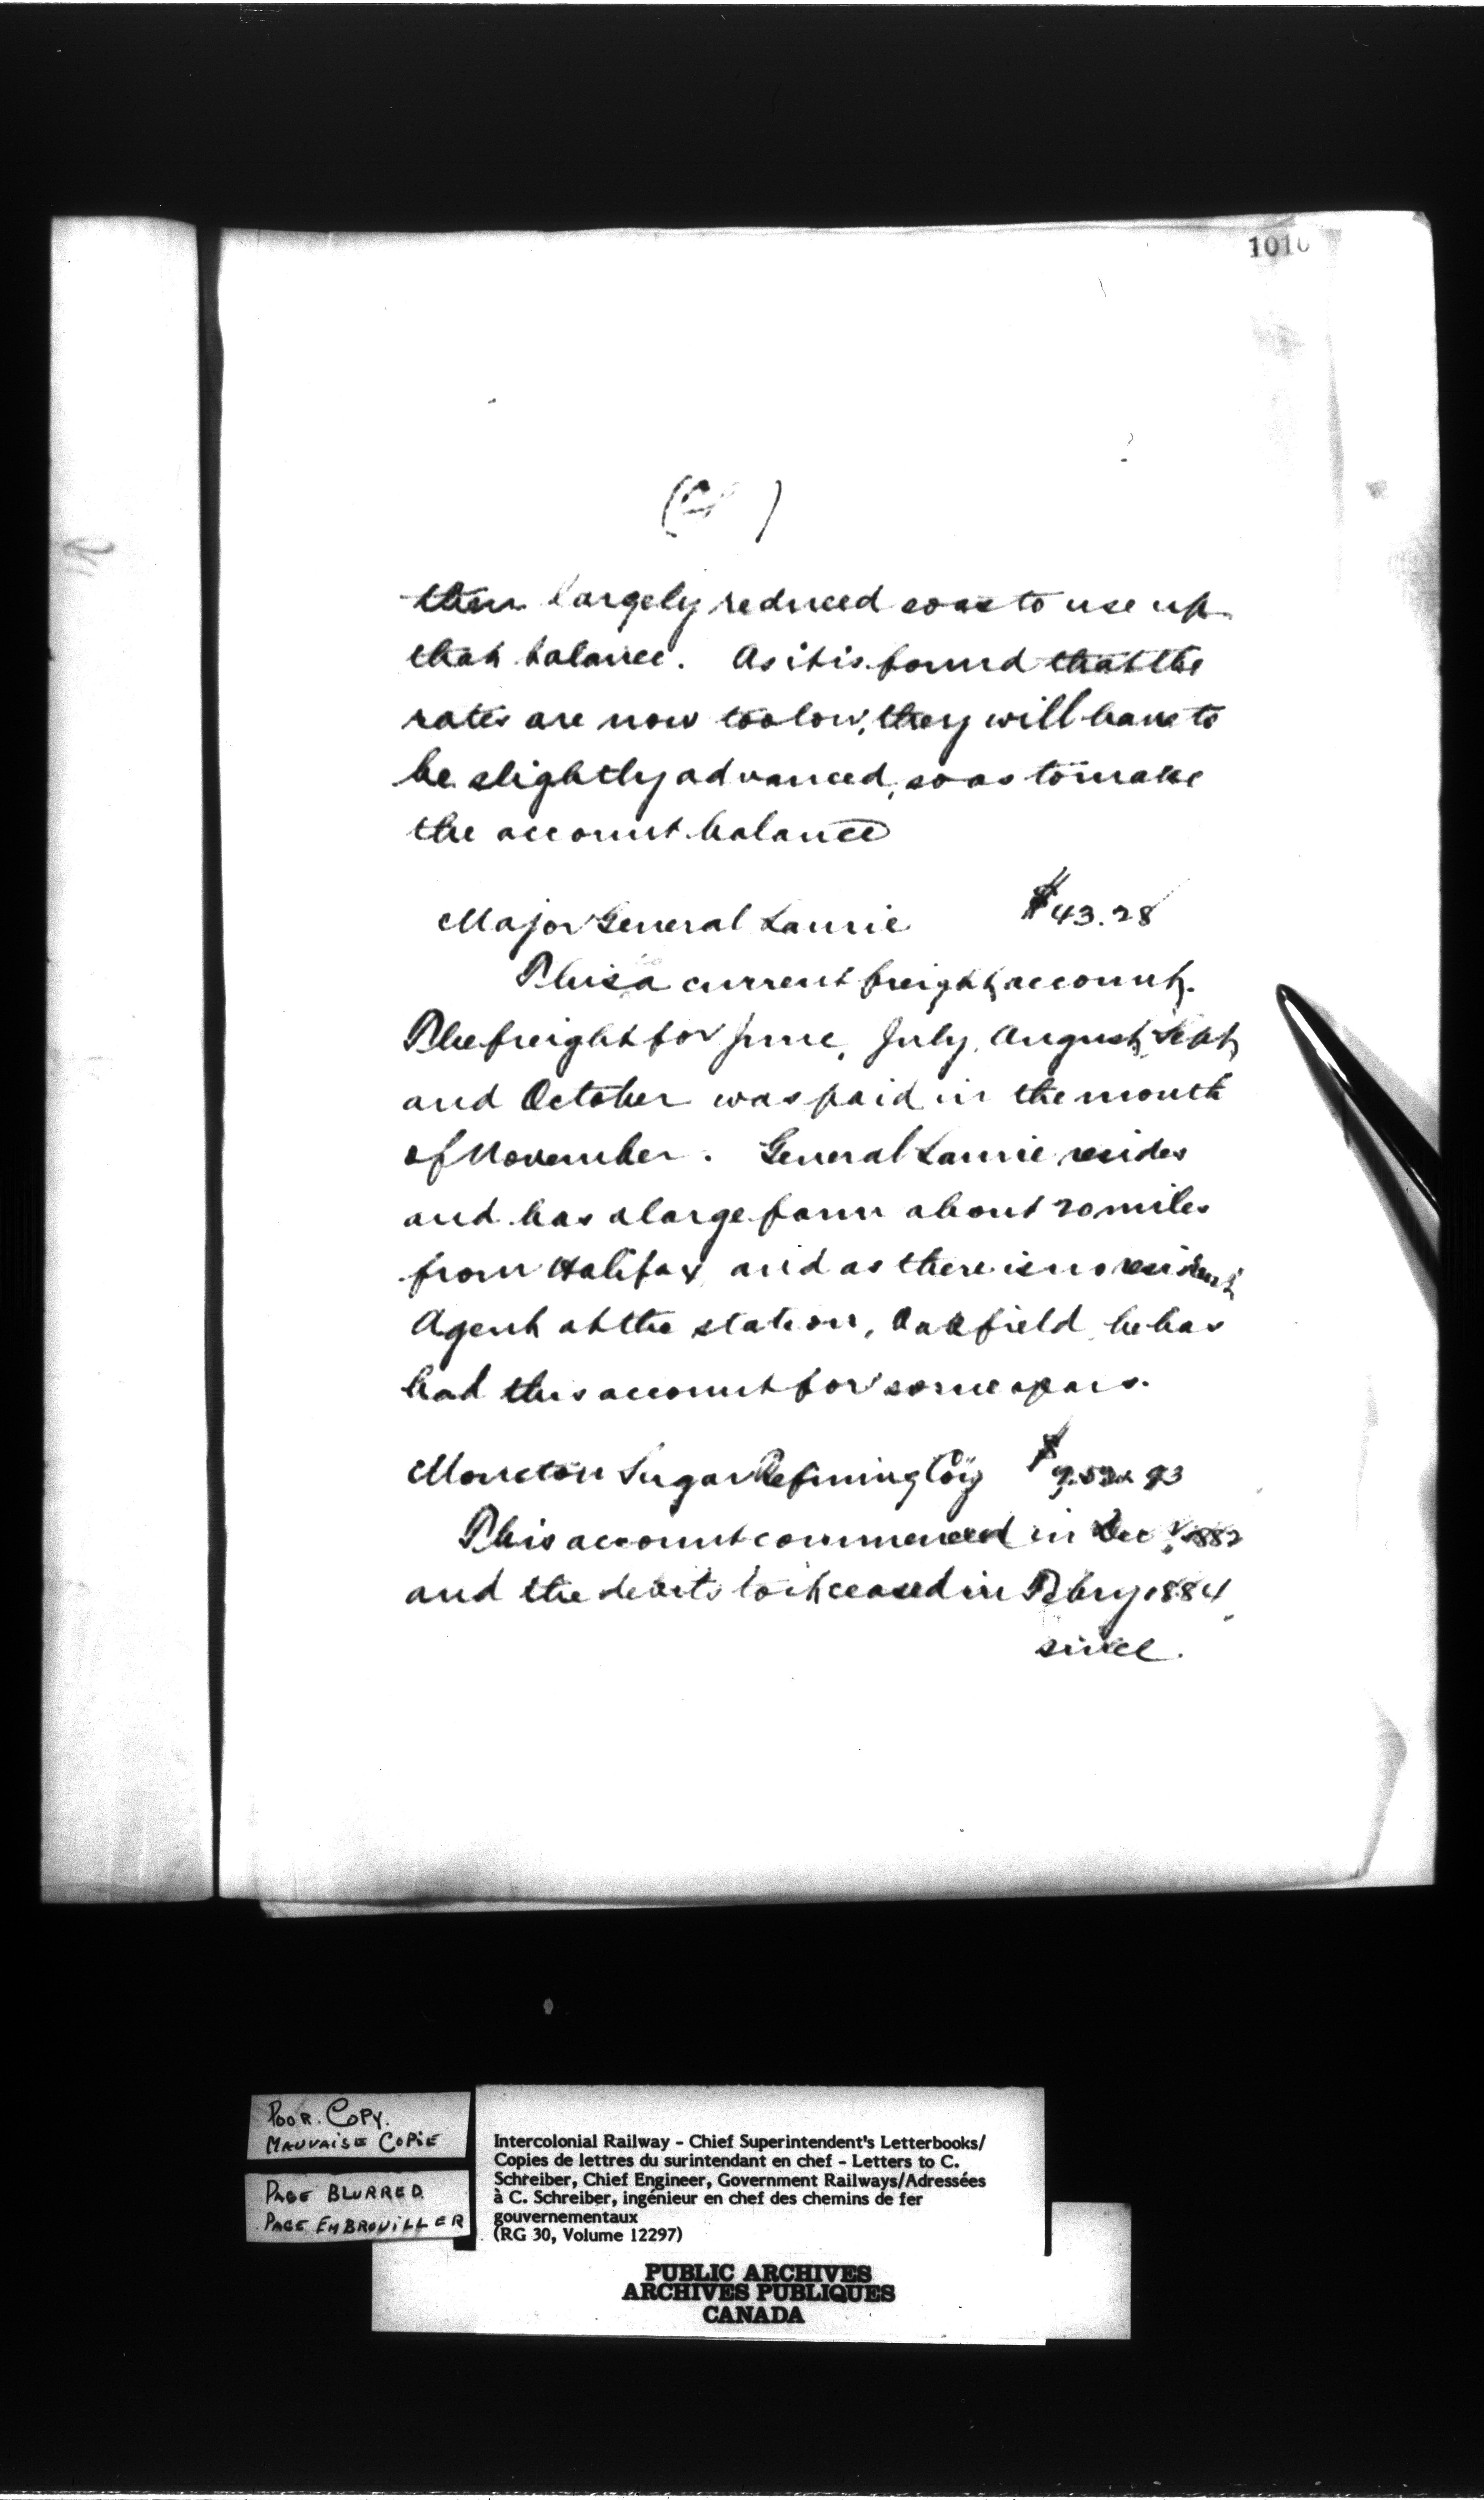 1010
then largely reduced so as to use up
that balance. As it is found that the
rates are now too low, they will have to
be slightly advanced, so as to make
the account balance
Major General Laurie $43.28
This a current freight account.
The freight for June, July, August, Sept,
and October was paid in the month
of November. General Laurie resides
and has a large farm about 20 miles
from Halifax and as there is no resident
Agent at the station, Oakfield, he has
had this account for some years.
Moncton Sugar Refining Coy
This account commenced in Dec 1882
and the debits to it ceased in Febry 1884,
since.
POOR. COPY.
MAUVAISE COPIE
PAGE BLURRED.
PAGE EMBROUILLER
Intercolonial Railway - Chief Superintendent's Letterbooks/
Copies de lettres du surintendant en chef - Letters to C.
Schreiber, Chief Engineer, Government Railways/Adressées
à C. Schreiber, ingénieur en chef des chemins de fer
gouvernementaux
(RG 30, Volume 12297)
PUBLIC ARCHIVES
ARCHIVES PUBLIQUES
CANADA